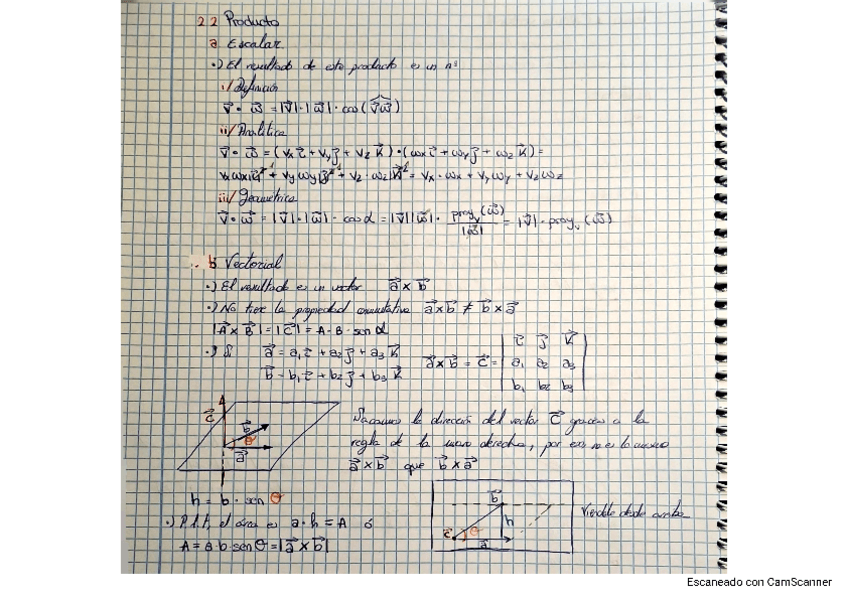 2 2 Producto
a Escalar
·) El resultado de este producto es un nº
i/ Definición
v⃗ · ω⃗ = |v⃗| · |ω⃗| · cos (v⃗ω⃗)
ii/ Analítica
v⃗ · ω⃗ = (vx i⃗ + vy j⃗ + vz k⃗) · (ωx i⃗ + ωy j⃗ + ωz k⃗) =
vx ωx |i⃗|² + vy ωy |j⃗|² + vz · ωz |k⃗|² = vx · ωx + vy ωy + vz ωz
iii/ Geométrica
v⃗ · ω⃗ = |v⃗| · |ω⃗| · cos α = |v⃗| |ω⃗| · proyv (ω⃗) / |ω⃗| = |v⃗| · proyv (ω⃗)
b Vectorial
·) El resultado es un vector a⃗ x b⃗
·) No tiene la propiedad conmutativa a⃗ x b⃗ ≠ b⃗ x a⃗
|A⃗ x B⃗| = |C⃗| = A · B · sen α
·) Si a⃗ = a₁ i⃗ + a₂ j⃗ + a₃ k⃗
b⃗ = b₁ i⃗ + b₂ j⃗ + b₃ k⃗
a⃗ x b⃗ = c⃗ = | i⃗ j⃗ k⃗ |
| a₁ a₂ a₃ |
| b₁ b₂ b₃ |
c⃗ b⃗ θ a⃗
Sacamos la dirección del vector c⃗ gracias a la
regla de la mano derecha, por eso no es lo mismo
a⃗ x b⃗ que b⃗ x a⃗
h = b · sen θ
·) P.l.t, el área es a · h = A ó
A = a · b · sen θ = |a⃗ x b⃗|
b⃗ h c⃗ θ a⃗
Viendolo desde arriba